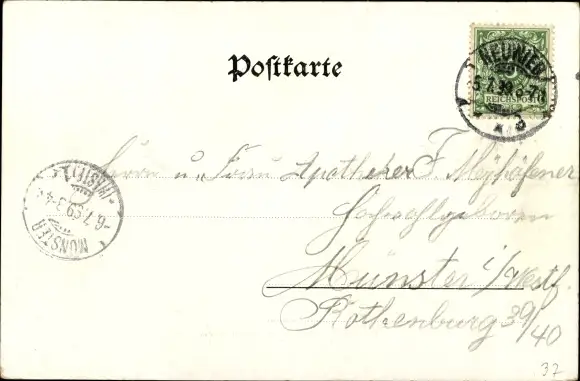 Postkarte
NEUWIED
5.7.99.6-7N
REICHSPOST
Herrn u. Frau Apotheker F. Meyhöfener
Hochwohlgeboren
Münster i/Westf.
Rothenburg 39/40
MÜNSTER (WESTF.)
-6.7.99.3-4
37